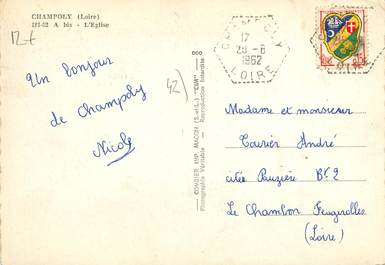 CHAMPOLY (Loire)
181-52 A bis - L'Eglise
12 €
Un bonjour
de Champoly
Nicole
42)
COMBIER IMP. MACON (S.-et-L.) "CIM"
Photographie Véritable - Reproduction Interdite
CHAMPOLY
17
28-6
1962
LOIRE
Madame et monsieur
Tourier André
citée Pauzière Bt 2
Le Chambon Feugerolles
(Loire)